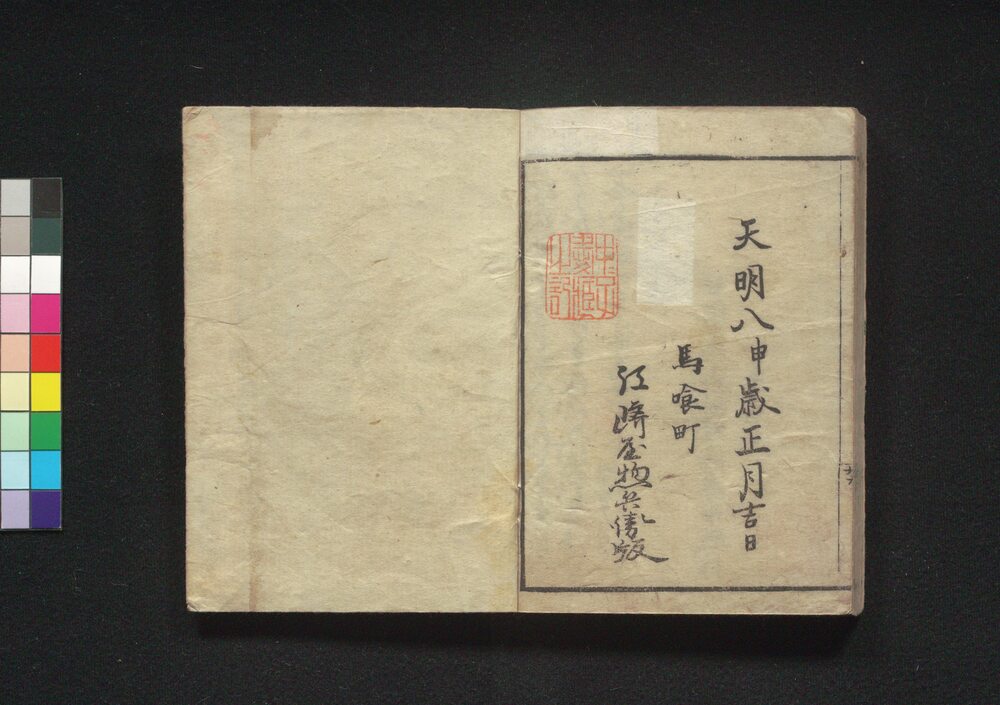 天明八申歳正月吉日
馬喰町
江崎屋惣兵衛版